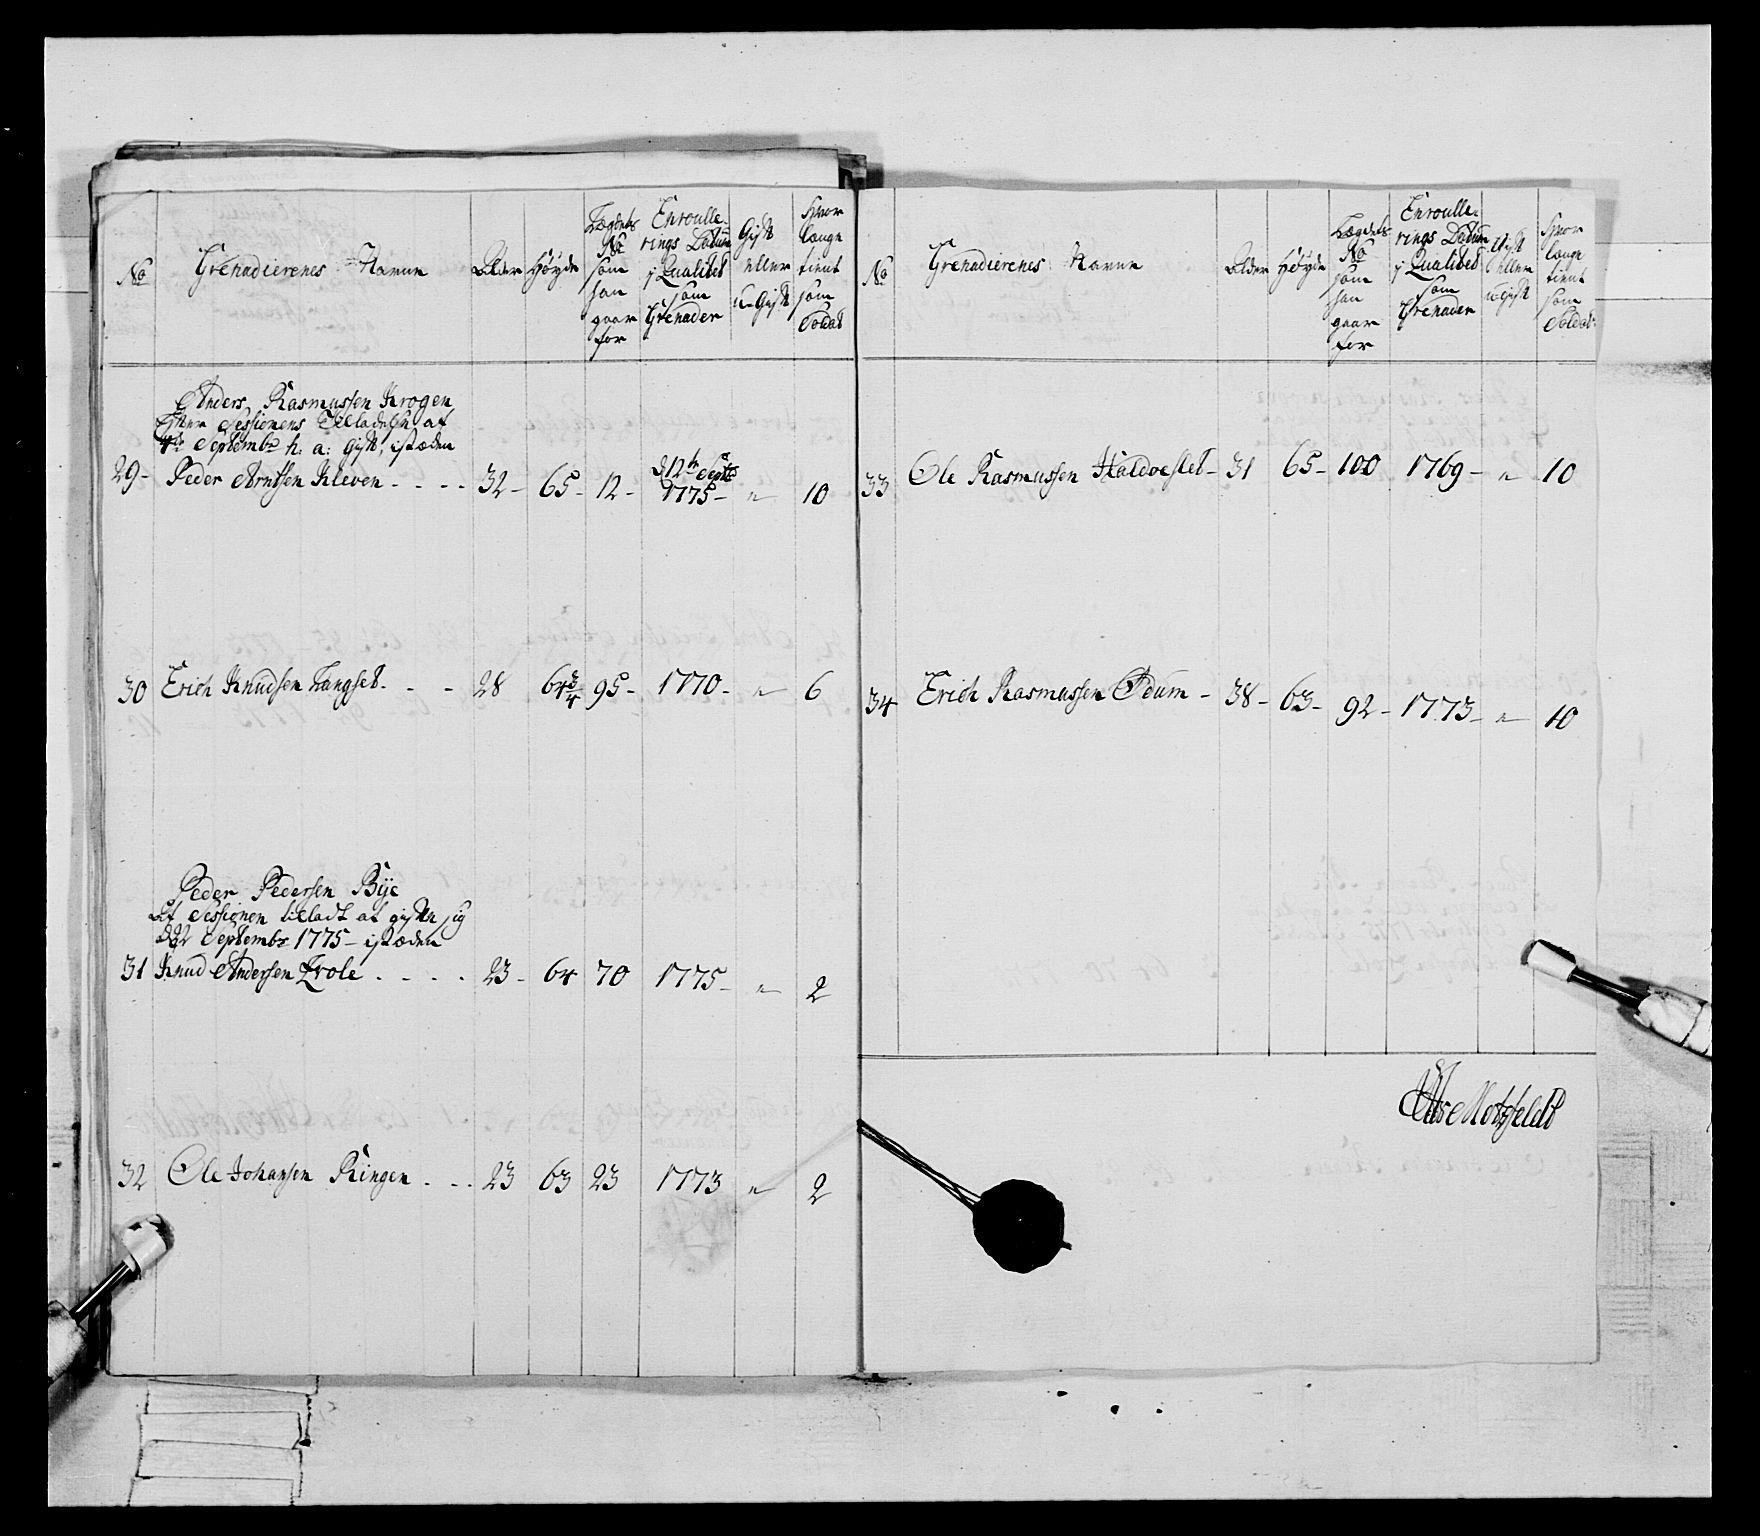 No
Grenadierenes Navne
Alder
Høyde
Lægdets
No
som
han
gaar
for
Enroulle-
rings Datum
j Qualitet
som
Grenader
Gift
eller
u-Gift
Hvor
længe
tient
som
Soldat
Anders Rasmussen Krogen
Efter Sessionens Tilladelse af
Septembr h: a: Gift, istæden
29- Peder Arntsen Kleven - - - - 32- 65- 12- d 12te Septbr 1775- " 10
30 Erich Knudsen Langset - - - 28 64¾ 95- 1770- " 6
Peder Pedersen Bye
Af Sessionen tilladt at gifte sig
d 22 Septembr 1775- istæden
31 Knud Andersen Trole - - - - 23- 64 70 1775- " 2
32 Ole Johansen Ringen - - - 23 63 23 1773 " 2
No
Grenadierenes Navne
Alder
Høyde
Lægdets
No
som
han
gaar
for
Enroulle-
rings Datum
j Qualitet
som
Grenader
Gift
eller
u-Gift
Hvor
længe
tient
som
Soldat
33 Ole Rasmussen Haldvestet- 31 65- 100 1769- " 10
34 Erich Rasmussen Ødum- 38- 63- 92- 1773- " 10
Motzfeldt